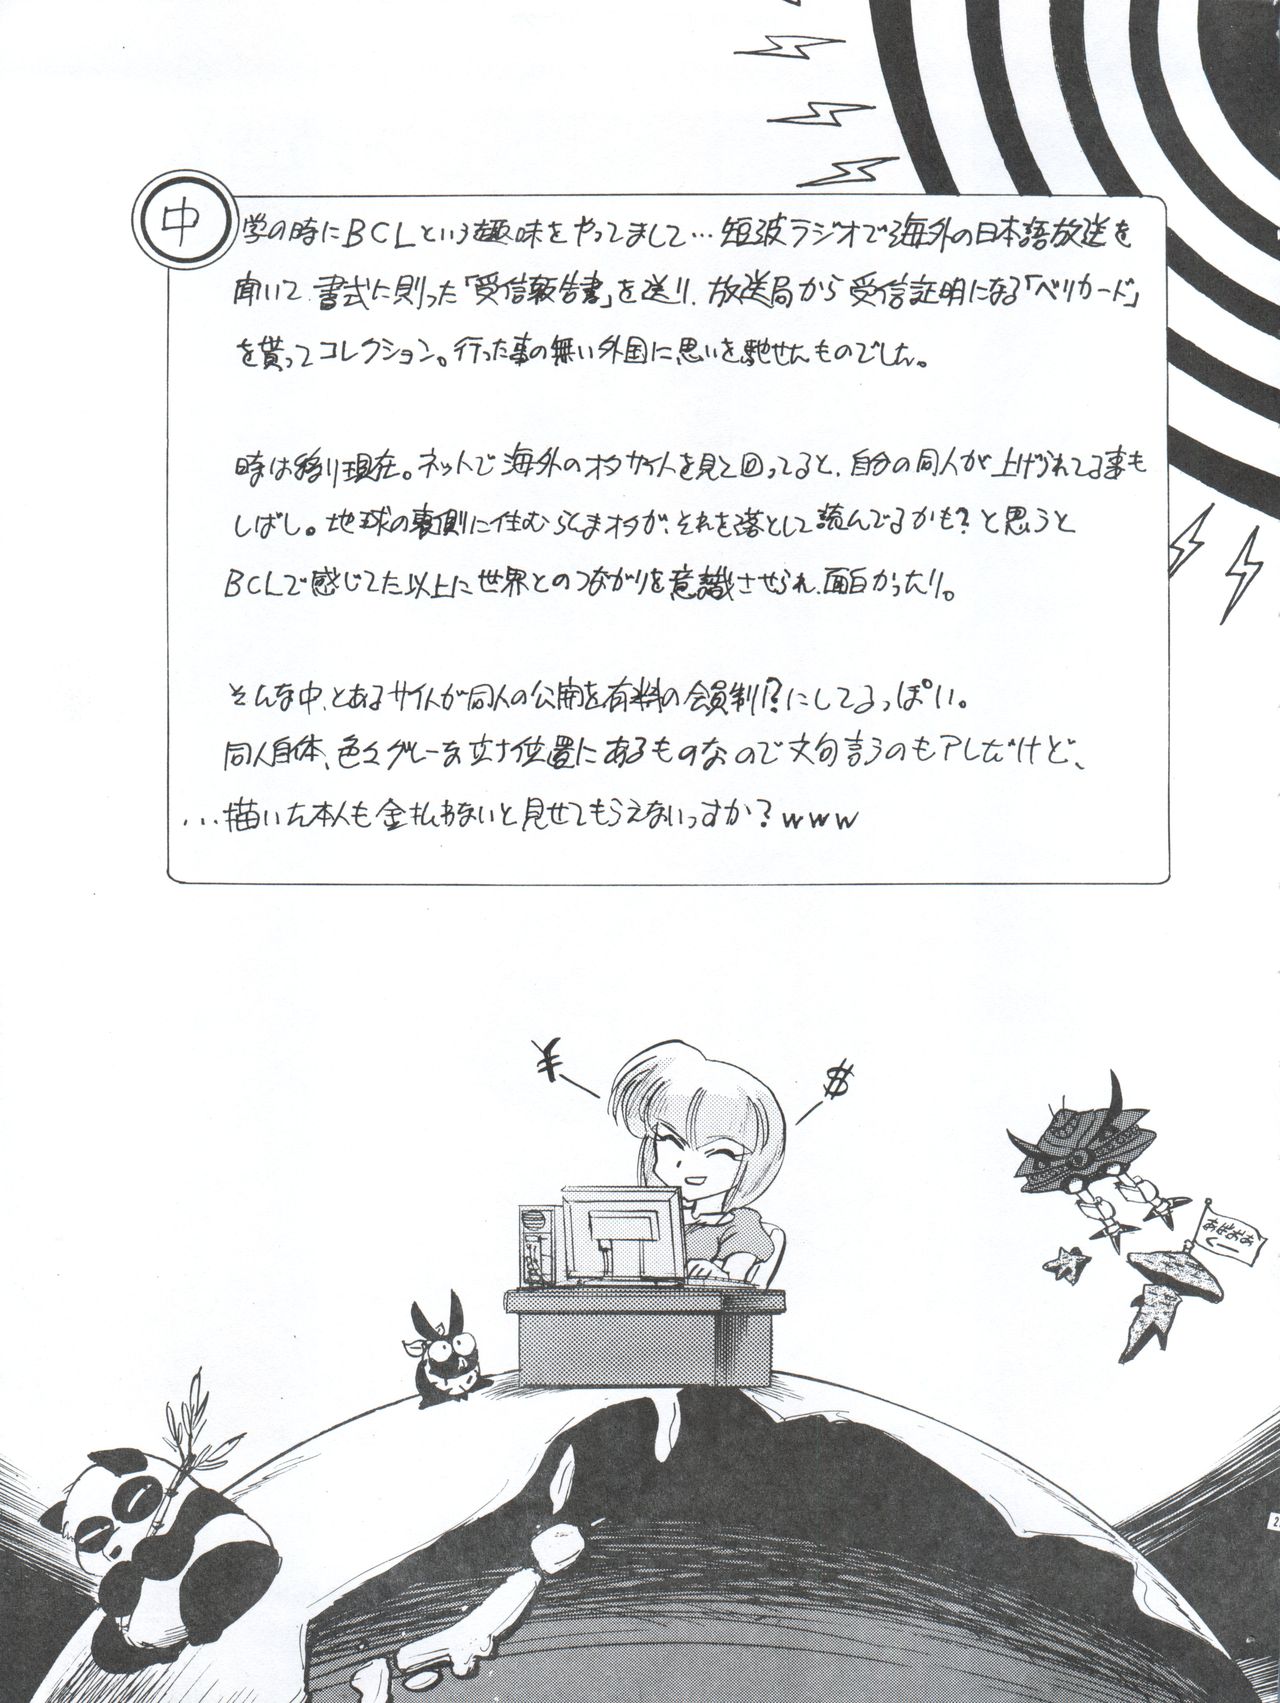 中学の時にBCLという趣味をやってまして…短波ラジオで海外の日本語放送を
聞いて、書式に則った「受信報告書」を送り、放送局から受信証明になる「ベリカード」
を貰ってコレクション。行った事の無い外国に思いを馳せたものでした。
時は移り現在。ネットで海外のオタサイトを見て回ってると、自分の同人が上げられてる事も
しばし。地球の裏側に住むらんまオタが、それを落として読んでるかも？と思うと
BCLで感じてた以上に世界とのつながりを意識させられ、面白かったり。
そんな中、とあるサイトが同人の公開を有料の会員制!?にしてるっぽい。
同人自体、色々グレーな立ち位置にあるものなので文句言うのもアレだけど、
...描いた本人も金払わないと見せてもらえないっすか？www
¥
$